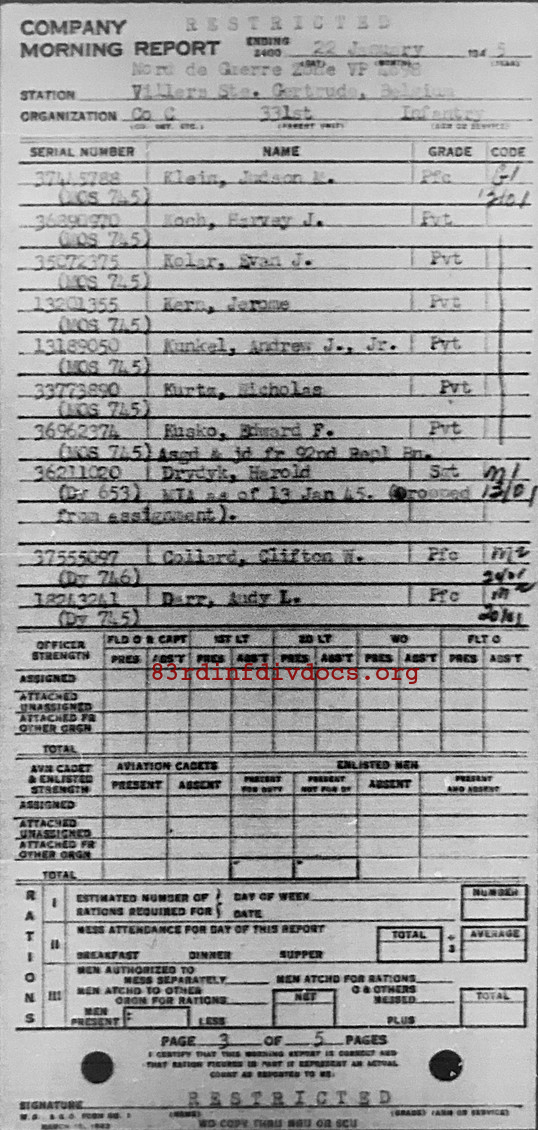 RESTRICTED
COMPANY
MORNING REPORT ENDING 2400 22 January 194 5
(DAY) (MONTH) (YEAR)
Nord de Guerre Zone VP
STATION Villers Ste. Gertrude, Belgium
ORGANIZATION Co C 331st Infantry
(CO. DET. ETC.) (PARENT UNIT) (ARM OR SERVICE)
SERIAL NUMBER NAME GRADE CODE
Klein, Judson M. Pfc G1
(MOS 745) 1201
36890970 Koch, Harvey J. Pvt
(MOS 745)
35072375 Kolar, Evan J. Pvt
(MOS 745)
13201355 Kern, Jerome Pvt
(MOS 745)
13189050 Kunkel, Andrew J., Jr. Pvt
(MOS 745)
33773890 Kurtz, Nicholas Pvt
(MOS 745)
36962374 Kusko, Edward F. Pvt
(MOS 745) Asgd & jd fr 92nd Repl Bn.
36211020 Drydyk, Harold Sgt M1
(Dy 653) MIA as of 13 Jan 45. (Dropped 13/01
from assignment).
37555097 Collard, Clifton W. Pfc M2
(Dy 746)
18243241 Darr, Audy L. Pfc M2
(Dy 745)
OFFICER STRENGTH FLD O & CAPT 1ST LT 2D LT WO FLT O
PRES ABS'T PRES ABS'T PRES ABS'T PRES ABS'T PRES ABS'T
83rdinfdivdocs.org
ASSIGNED
ATTACHED UNASSIGNED
ATTACHED FR OTHER ORGN
TOTAL
AVN CADET & ENLISTED STRENGTH AVIATION CADETS ENLISTED MEN
PRESENT ABSENT PRESENT FOR DUTY PRESENT NOT FOR DY ABSENT PRESENT AND ABSENT
ASSIGNED
ATTACHED UNASSIGNED
ATTACHED FR OTHER ORGN
TOTAL
RATIONS
I ESTIMATED NUMBER OF RATIONS REQUIRED FOR DAY OF WEEK DATE NUMBER
II MESS ATTENDANCE FOR DAY OF THIS REPORT TOTAL ÷ 3 AVERAGE
BREAKFAST DINNER SUPPER
III MEN AUTHORIZED TO MESS SEPARATELY MEN ATCHD FOR RATIONS
MEN ATCHD TO OTHER ORGN FOR RATIONS NET O & OTHERS MESSED TOTAL
MEN PRESENT LESS PLUS
PAGE 3 OF 5 PAGES
I CERTIFY THAT THIS MORNING REPORT IS CORRECT AND
THAT RATION FIGURES IN PART II REPRESENT AN ACTUAL
COUNT AS REPORTED TO ME.
RESTRICTED
SIGNATURE
W. D., A.G.O. FORM NO. 1 (NAME) (GRADE) (ARM OR SERVICE)
WD COPY THRU MRU OR SCU